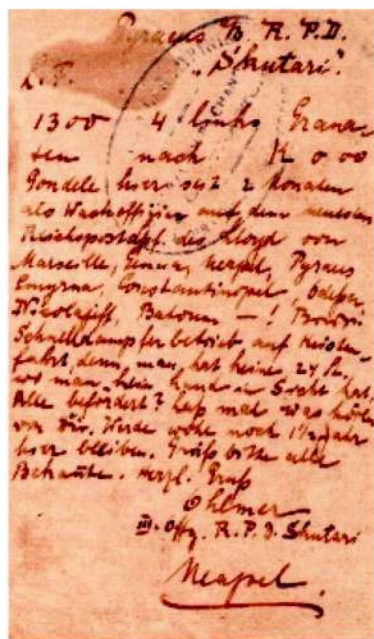 Pyraus R.P.D.
„Skutari“.
L. F.
1300 4 links Grana-
ten nach K 000
Gondele hier seit 2 Monaten
als Wachoffizier auf dem neuesten
Reichspostdpf. des Lloyd von
Marseille, Genua, Neapel, Pyraus
Smyrna, Constantinopel, Odessa
Nikolajeff, Batoum — !
Schnelldampferbetrieb auf Küsten-
fahrt, denn man hat keine 24 St.
wo man kein Land in Sicht hat.
Alle befördert? Laß mal was hören
von Dir. Werde wohl noch 1½ Jahr
hier bleiben. Grüß bitte alle
Bekannte. Herzl. Gruß
Ohlmer
III. Offz. R.P.D. Skutari
Neapel.